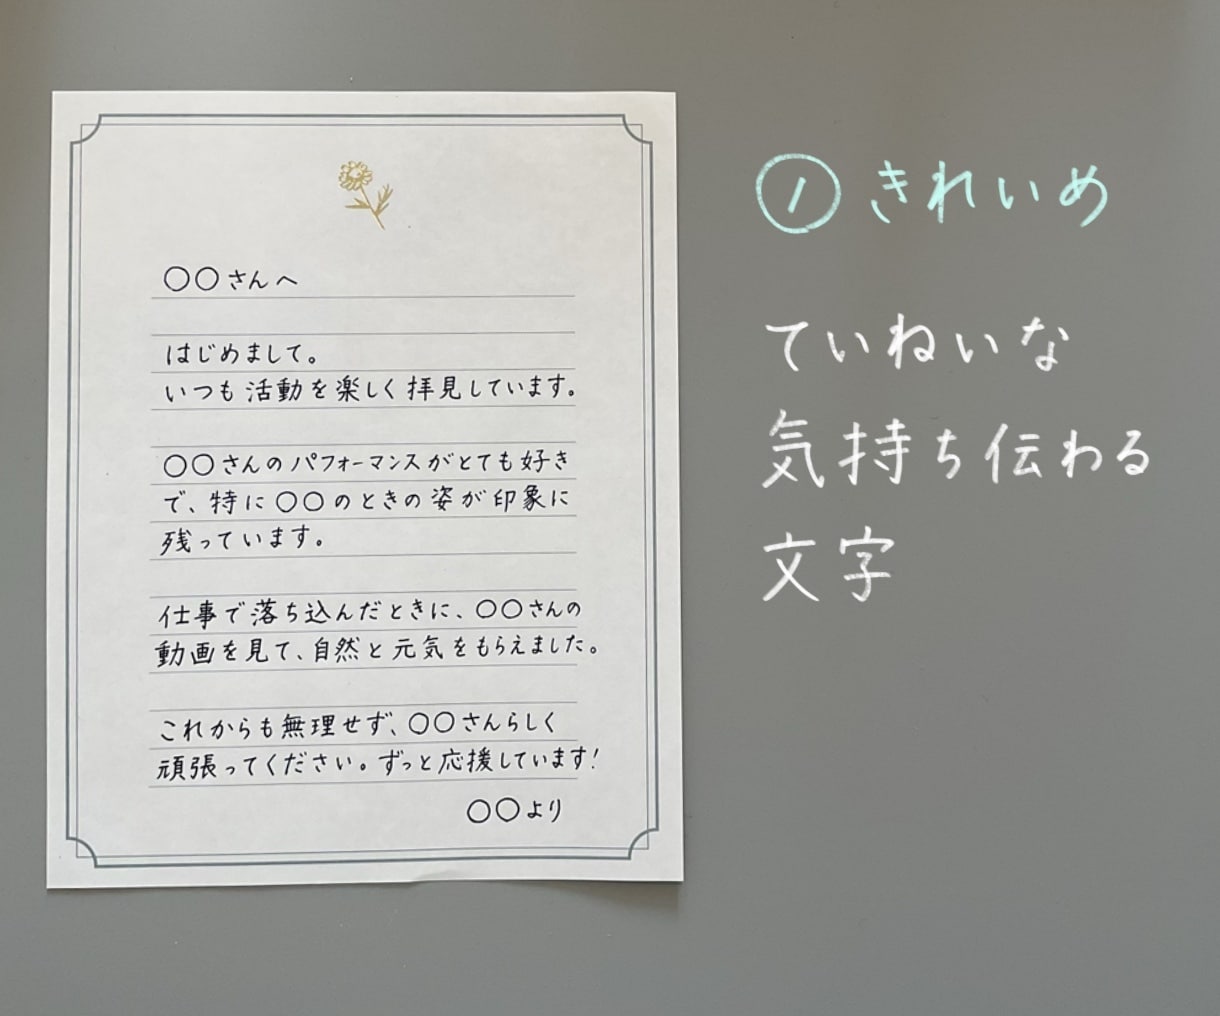 ○○さんへ
はじめまして。
いつも活動を楽しく拝見しています。
○○さんのパフォーマンスがとても好き
で、特に○○のときの姿が印象に
残っています。
仕事で落ち込んだときに、○○さんの
動画を見て、自然と元気をもらえました。
これからも無理せず、○○さんらしく
頑張ってください。ずっと応援しています!
○○より
① きれいめ
ていねいな
気持ち伝わる
文字